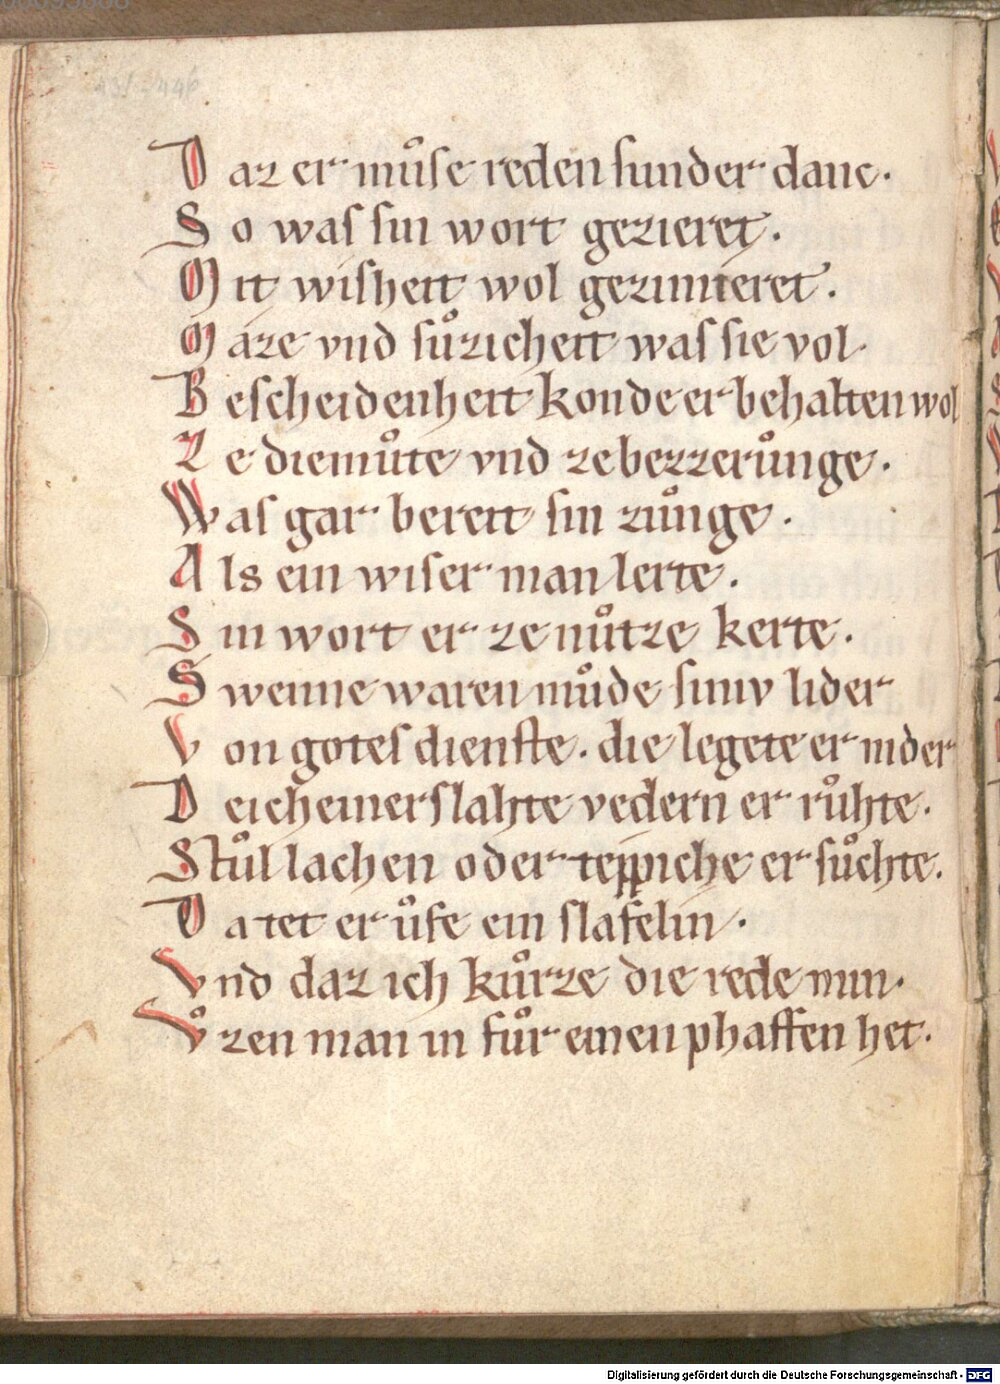 D az er muͦse reden sunder danc.
S o was sin wort gezieret.
M it wisheit wol gezimieret.
M aze vnd suͦzicheit was sie vol.
B escheidenheit konde er behalten wol
Z e diemuͦte vnd ze bezzeruͦnge.
W as gar bereit sin zuͦnge.
A ls ein wiser man lerte.
S in wort er ze nuͦtze kerte.
S wenne waren muͦde siniv lider
V on gotes dienste. die legete er nider
D eicheiner slahte vedern er ruͦhte.
Stuͦl lachen oder teppiche er suͦchte.
D a tet er uͦfe ein slafelin.
V nd daz ich kuͦrze die rede min.
Vͦ zen man in fuͦr einen phaffen het.
Digitalisierung gefördert durch die Deutsche Forschungsgemeinschaft - DFG